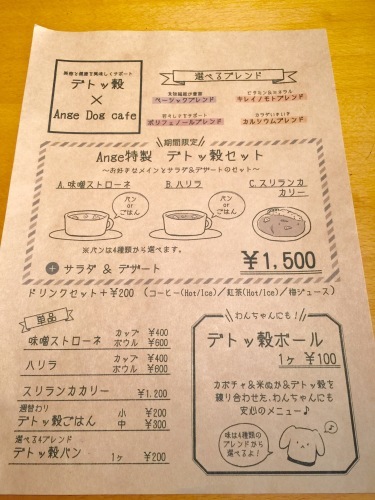 美容と健康を美味しくサポート
デトッ穀
×
Ange Dog cafe
選べるブレンド
食物繊維が豊富
ベーシックブレンド
ビタミン&ミネラル
キレイノモトブレンド
若々しさをサポート
ポリフェノールブレンド
カラダいきいき
カルシウムブレンド
期間限定
Ange特製 デトッ穀セット
~お好きなメインとサラダ&デザートのセット~
A.味噌ストローネ
B.ハリラ
C.スリランカ
カリー
パン
or
ごはん
パン
or
ごはん
※パンは4種類から選べます。
+ サラダ & デザート
¥1,500
ドリンクセット+¥200 (コーヒー(Hot/Ice)/紅茶(Hot/Ice)/梅ジュース)
単品
味噌ストローネ カップ ¥400
ボウル ¥600
ハリラ カップ ¥400
ボウル ¥600
スリランカカリー ¥1,200
週替わり
デトッ穀ごはん 小 ¥200
中 ¥300
選べる4ブレンド
デトッ穀パン 1ヶ ¥200
わんちゃんにも!
デトッ穀ボール
1ヶ ¥100
カボチャ&米ぬか&デトッ穀を
練り合わせた、わんちゃんにも
安心のメニュー♪
味は4種類の
ブレンドから
選べるよ!